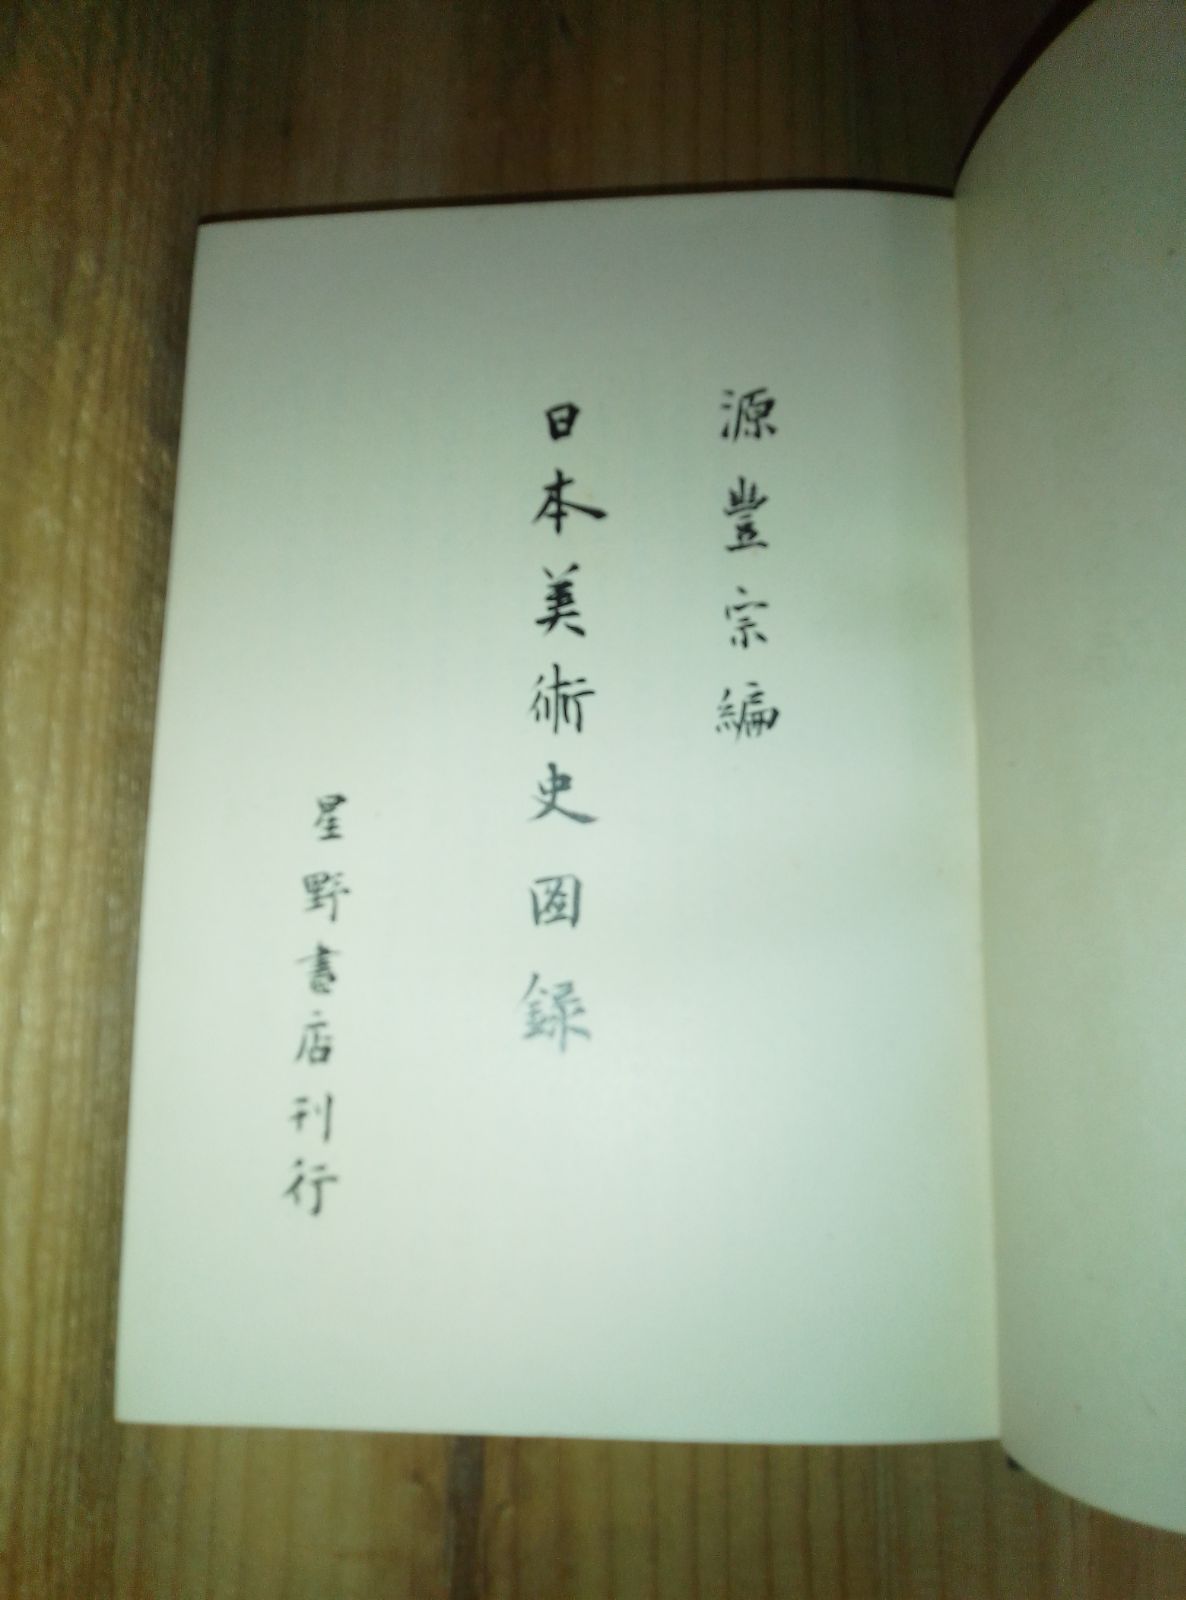 源豐宗編
日本美術史図録
星野書店刊行